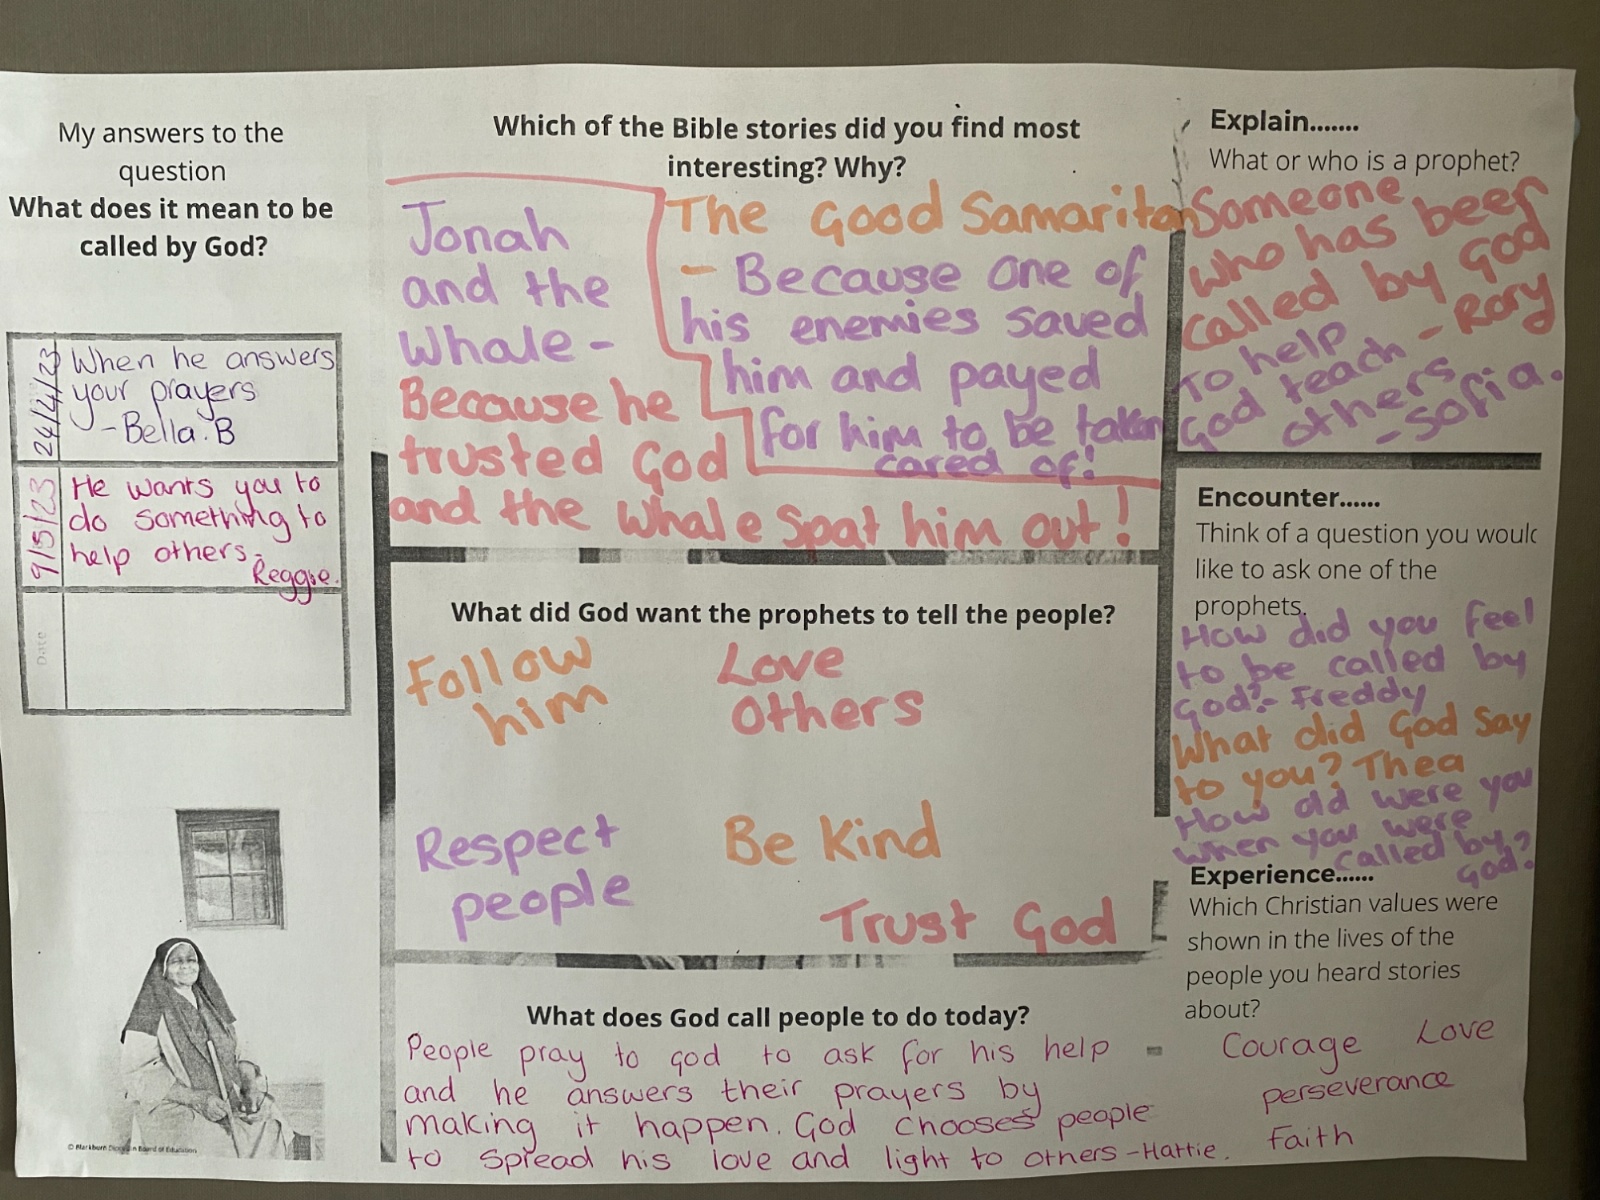 My answers to the
question
What does it mean to be
called by God?
24/4/23
When he answers
your prayers
- Bella. B
9/5/23
He wants you to
do something to
help others -
Reggie.
Date
© Blackburn Diocesan Board of Education
Which of the Bible stories did you find most
interesting? Why?
Jonah
and the
Whale -
Because he
trusted God
and the whale spat him out!
The Good Samaritan
- Because one of
his enemies saved
him and payed
for him to be taken
cared of!
What did God want the prophets to tell the people?
Follow
him
Love
Others
Respect
people
Be Kind
Trust God
What does God call people to do today?
People pray to god to ask for his help
and he answers their prayers by
making it happen. God chooses people
to spread his love and light to others - Hattie.
Explain.......
What or who is a prophet?
Someone
who has been
called by God
- Rory
To help
God teach
others
- Sofia.
Encounter......
Think of a question you would
like to ask one of the
prophets.
How did you feel
to be called by
God? - Freddy
What did God say
to you? Thea
How old were you
when you were
called by
God?
Experience......
Which Christian values were
shown in the lives of the
people you heard stories
about?
Courage Love
perseverance
faith